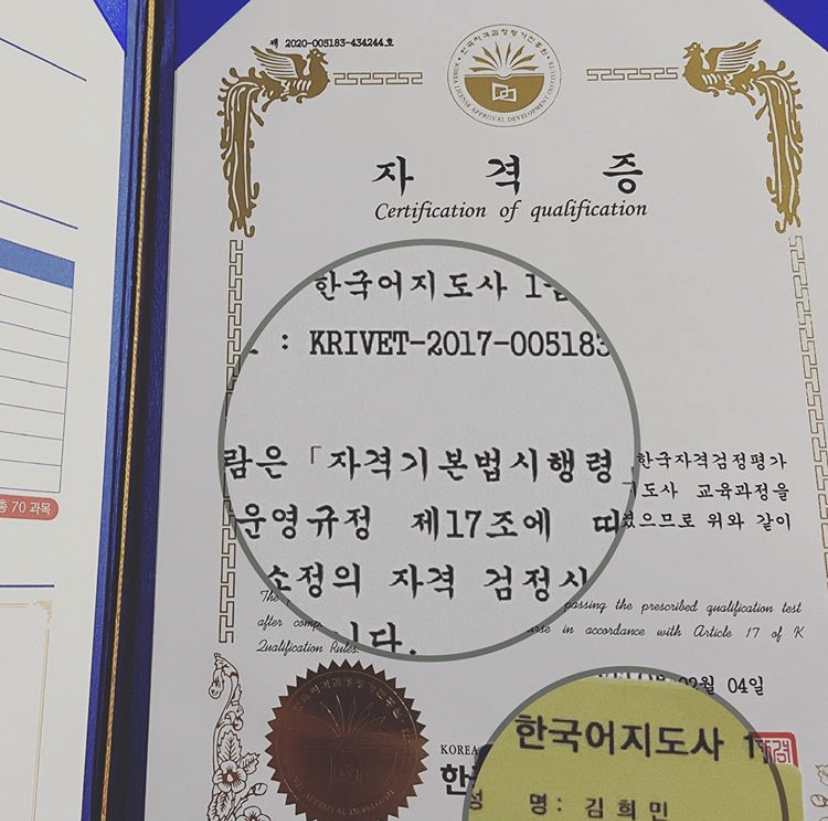 제 2020-005183-434244호
한국자격검정평가진흥원
KOREA LICENSE APPROVAL DEVELOPMENT INSTITUTE
자 격 증
Certification of qualification
한국어지도사
: KRIVET-2017-005183
람은 「자격기본법시행령
한국자격검정평가
도사 교육과정을
운영규정 제17조에
으므로 위와 같이
소정의 자격 검정시
다.
The
passing the prescribed qualification test
after
in accordance with Article 17 of K
Qualification Rules.
02월 04일
총 70 과목
KOREA
한
한국어지도사 1
성 명: 김희민